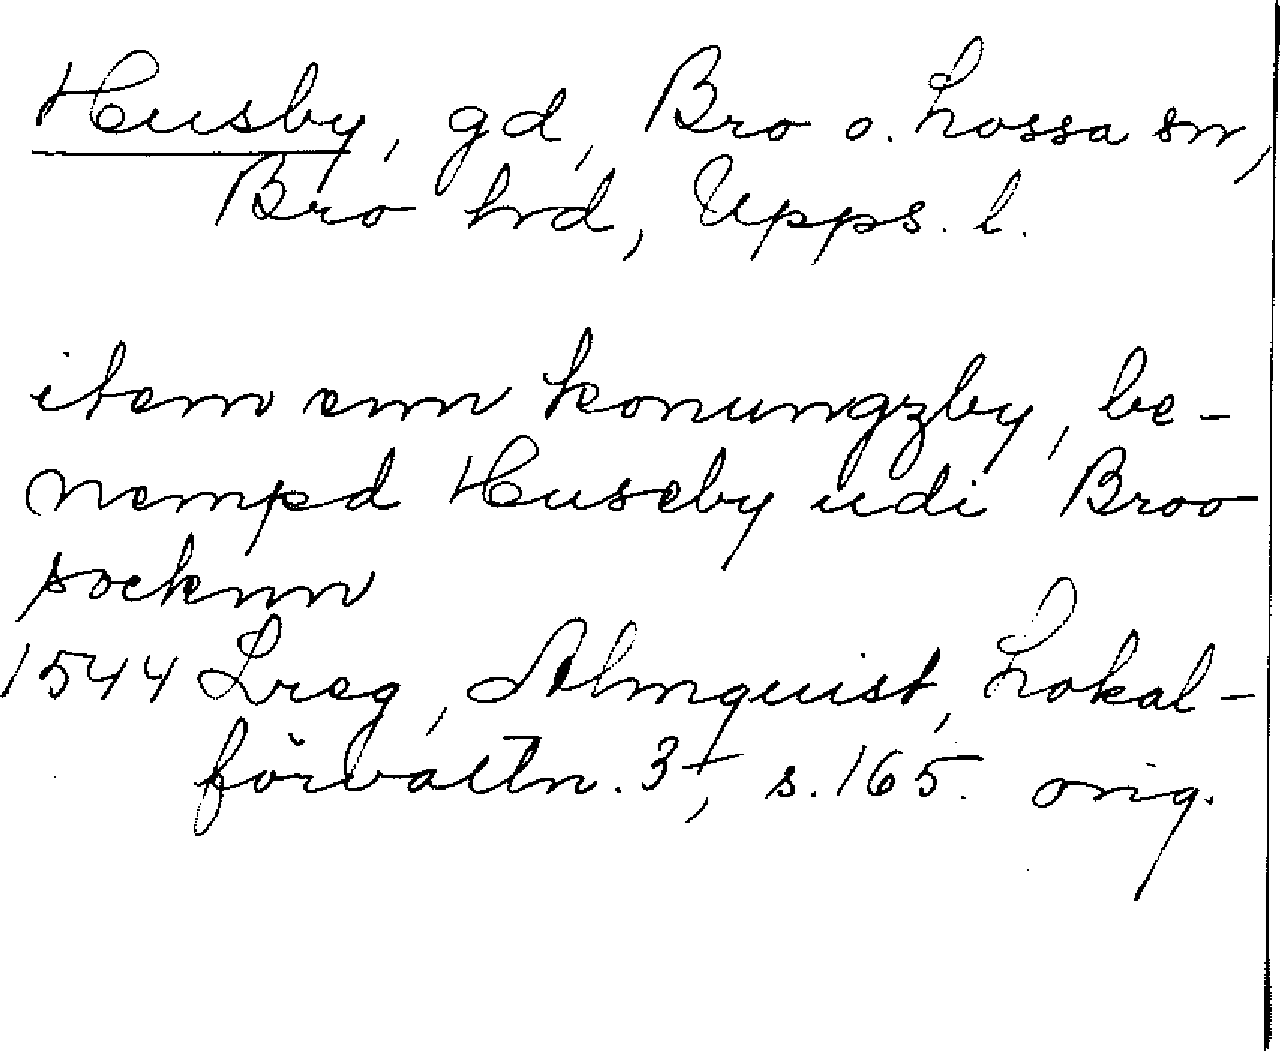 Husby, gd, Bro o. Lossa sn,
Bro hrd, Upps. l.
item enn konungzby, be-
nempd Huseby udi Broo
socknn
1544 Lreg, Almquist, Lokal-
förvaltn. 3+, s. 165. orig.